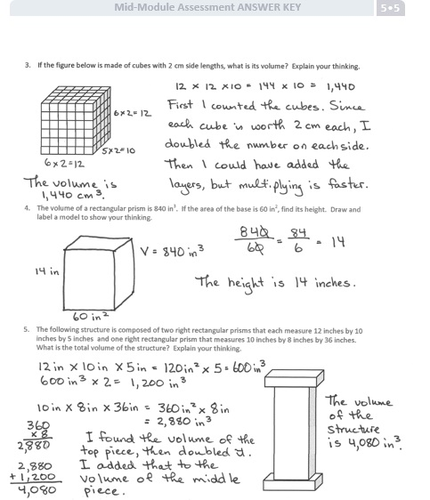 Mid-Module Assessment ANSWER KEY 5•5
3. If the figure below is made of cubes with 2 cm side lengths, what is its volume? Explain your thinking.
12 × 12 × 10 = 144 × 10 = 1,440
First I counted the cubes. Since
6×2=12
each cube is worth 2 cm each, I
5×2=10
doubled the number on each side.
6×2=12
Then I could have added the
The volume is
layers, but multiplying is faster.
1,440 cm³.
4. The volume of a rectangular prism is 840 in³. If the area of the base is 60 in², find its height. Draw and
label a model to show your thinking.
840/60 = 84/6 = 14
V = 840 in³
14 in
The height is 14 inches.
60 in²
5. The following structure is composed of two right rectangular prisms that each measure 12 inches by 10
inches by 5 inches and one right rectangular prism that measures 10 inches by 8 inches by 36 inches.
What is the total volume of the structure? Explain your thinking.
12 in × 10 in × 5 in = 120 in² × 5 = 600 in³
600 in³ × 2 = 1,200 in³
10 in × 8 in × 36 in = 360 in² × 8 in
= 2,880 in³
360
× 8
2,880
I found the volume of the
top piece, then doubled it.
2,880
I added that to the
+ 1,200
volume of the middle
4,080
piece.
The volume
of the
structure
is 4,080 in³.